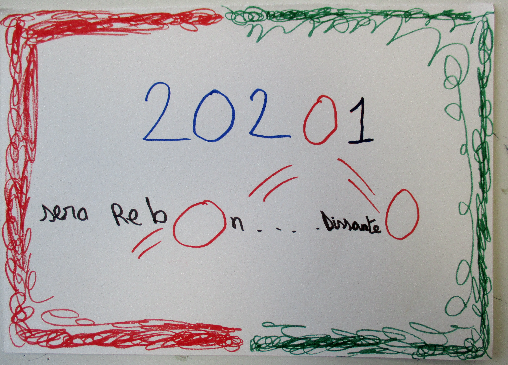 20201
sera RebOn.....DissanteO